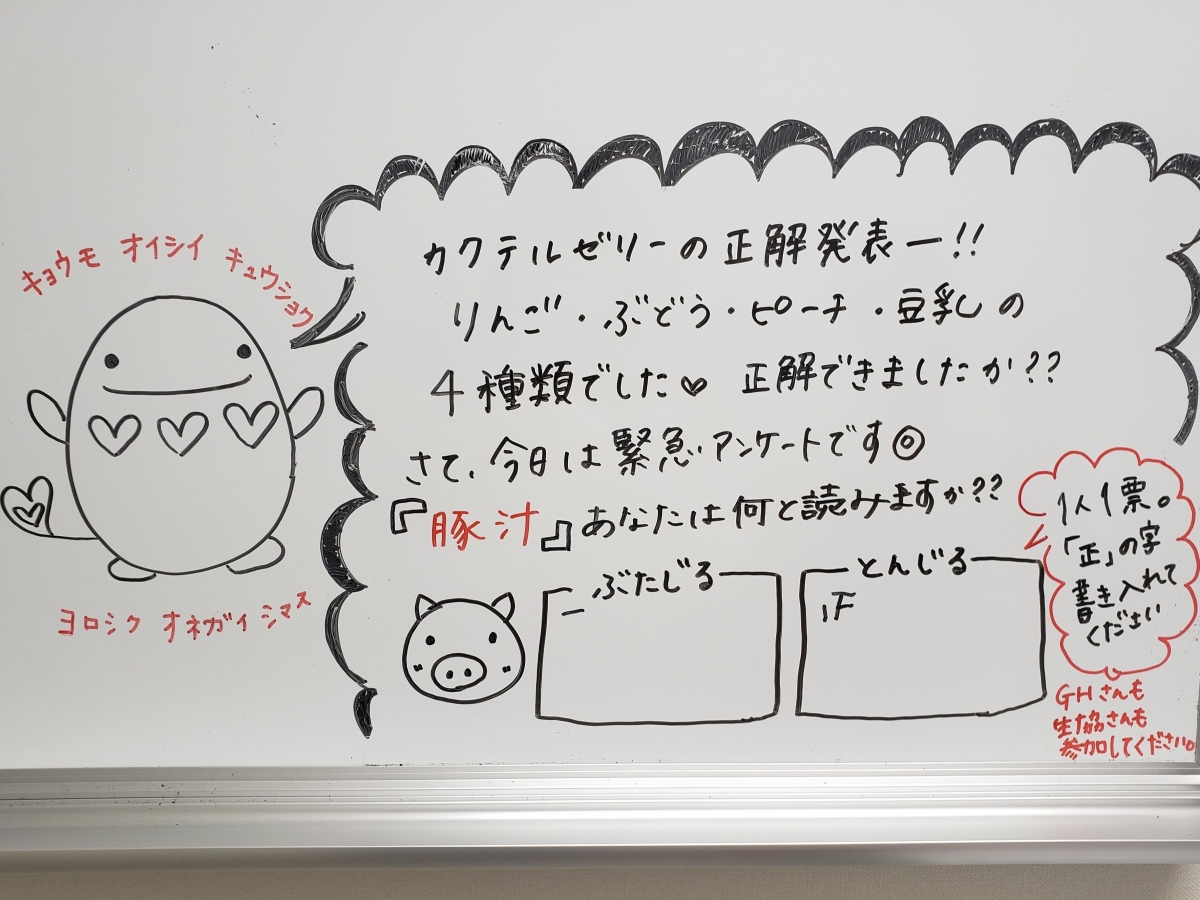 キョウモ オイシイ キュウショク
ヨロシク オネガイシマス
カクテルゼリーの正解発表ー!!
りんご・ぶどう・ピーチ・豆乳の
4種類でした♡ 正解できましたか??
さて、今日は緊急アンケートです◎
『豚汁』あなたは何と読みますか??
ぶたじる
一
とんじる
正
1人1票。
「正」の字
書き入れて
ください
GHさんも
生協さんも
参加してください。